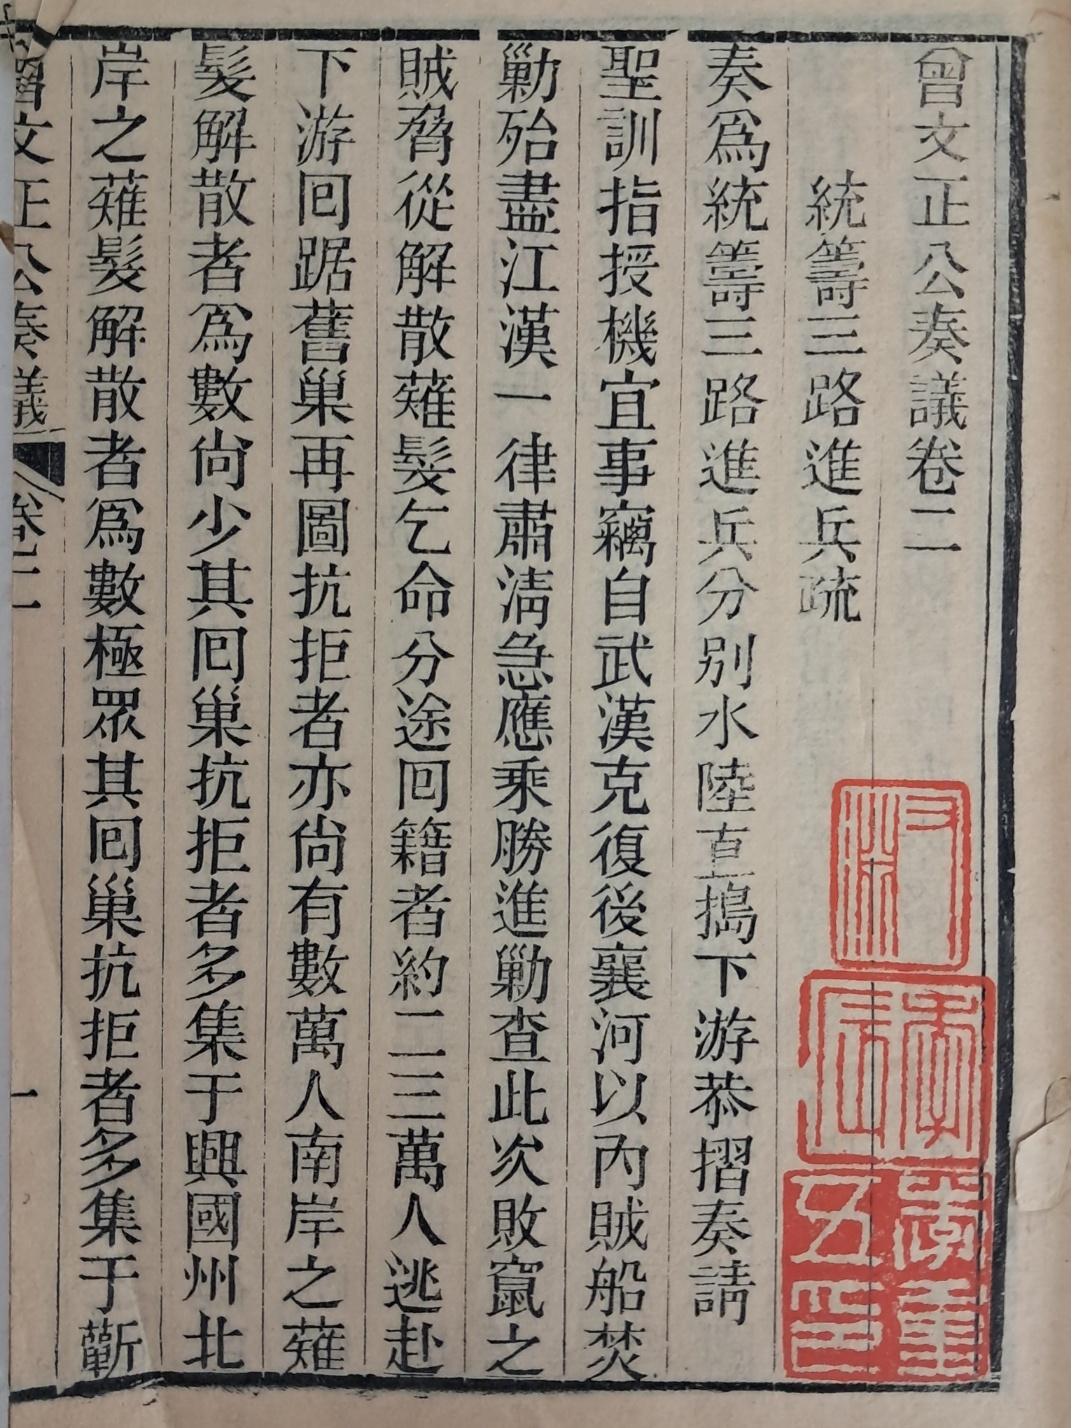 曾文正公奏議卷二
統籌三路進兵疏
奏爲統籌三路進兵分別水陸直搗下游恭摺奏請
聖訓指授機宜事竊自武漢克復後襄河以內賊船焚
勦殆盡江漢一律肅淸急應乘勝進勦查此次敗竄之
賊脅從解散薙髮乞命分途回籍者約二三萬人逃赴
下游回踞舊巢再圖抗拒者亦尙有數萬人南岸之薙
髮解散者爲數尙少其回巢抗拒者多集于興國州北
岸之薙髮解散者爲數極眾其回巢抗拒者多集于蘄
曾文正公奏議
卷二
一